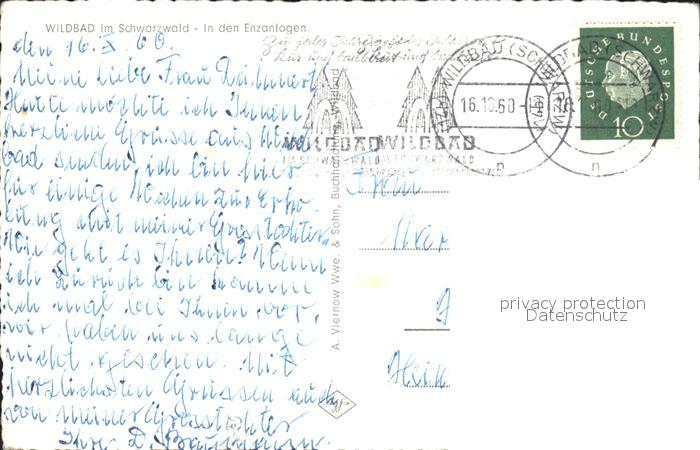 WILDBAD im Schwarzwald - In den Enzanlagen
den 16. X. 60.
Meine liebe Frau
Heute möchte ich Ihnen
herzliche Grüsse aus Wild
bad senden, ich bin hier
für einige Wochen zur Erho-
lung mit meiner Grosstochter.
Wie geht es Ihnen? Wenn
ich zurück bin komme
ich mal bei Ihnen vor,
wir haben uns lange
nicht gesehen. Mit
herzlichsten Grüssen auch
von meiner Grosstochter
Ihre D. Baumann.
A. Viernow Wwe. & Sohn, Buchhandlung, Wildbad
WILDBAD WILDBAD
IM SCHWARZWALD IM SCHWARZWALD
WILDBAD (SCHWARZW)
16.10.60
n
n
DEUTSCHE BUNDESPOST
10
Frau
Mar
Hein
privacy protection
Datenschutz